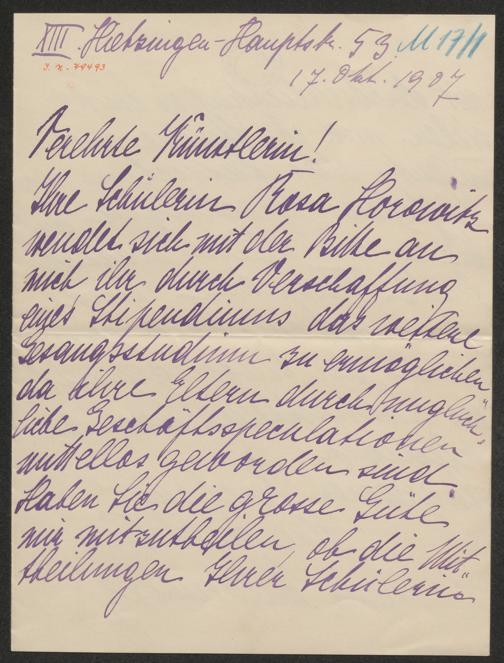 XIII. Hietzingen-Hauptstr. 53 M 17/1
I.N. 79493
17. Okt. 1907
Verehrte Künstlerin!
Ihre Schülerin Rosa Horowitz
wendet sich mit der Bitte an
mich ihr durch Verschaffung
eines Stipendiums das weitere
Gesangsstudium zu ermöglichen
da ihre Eltern durch unglück-
liche Geschäftsspeculationen
mittellos geworden sind
Haben Sie die grosse Güte
mir mitzutheilen, ob die Mit-
theilungen Ihrer Schülerin